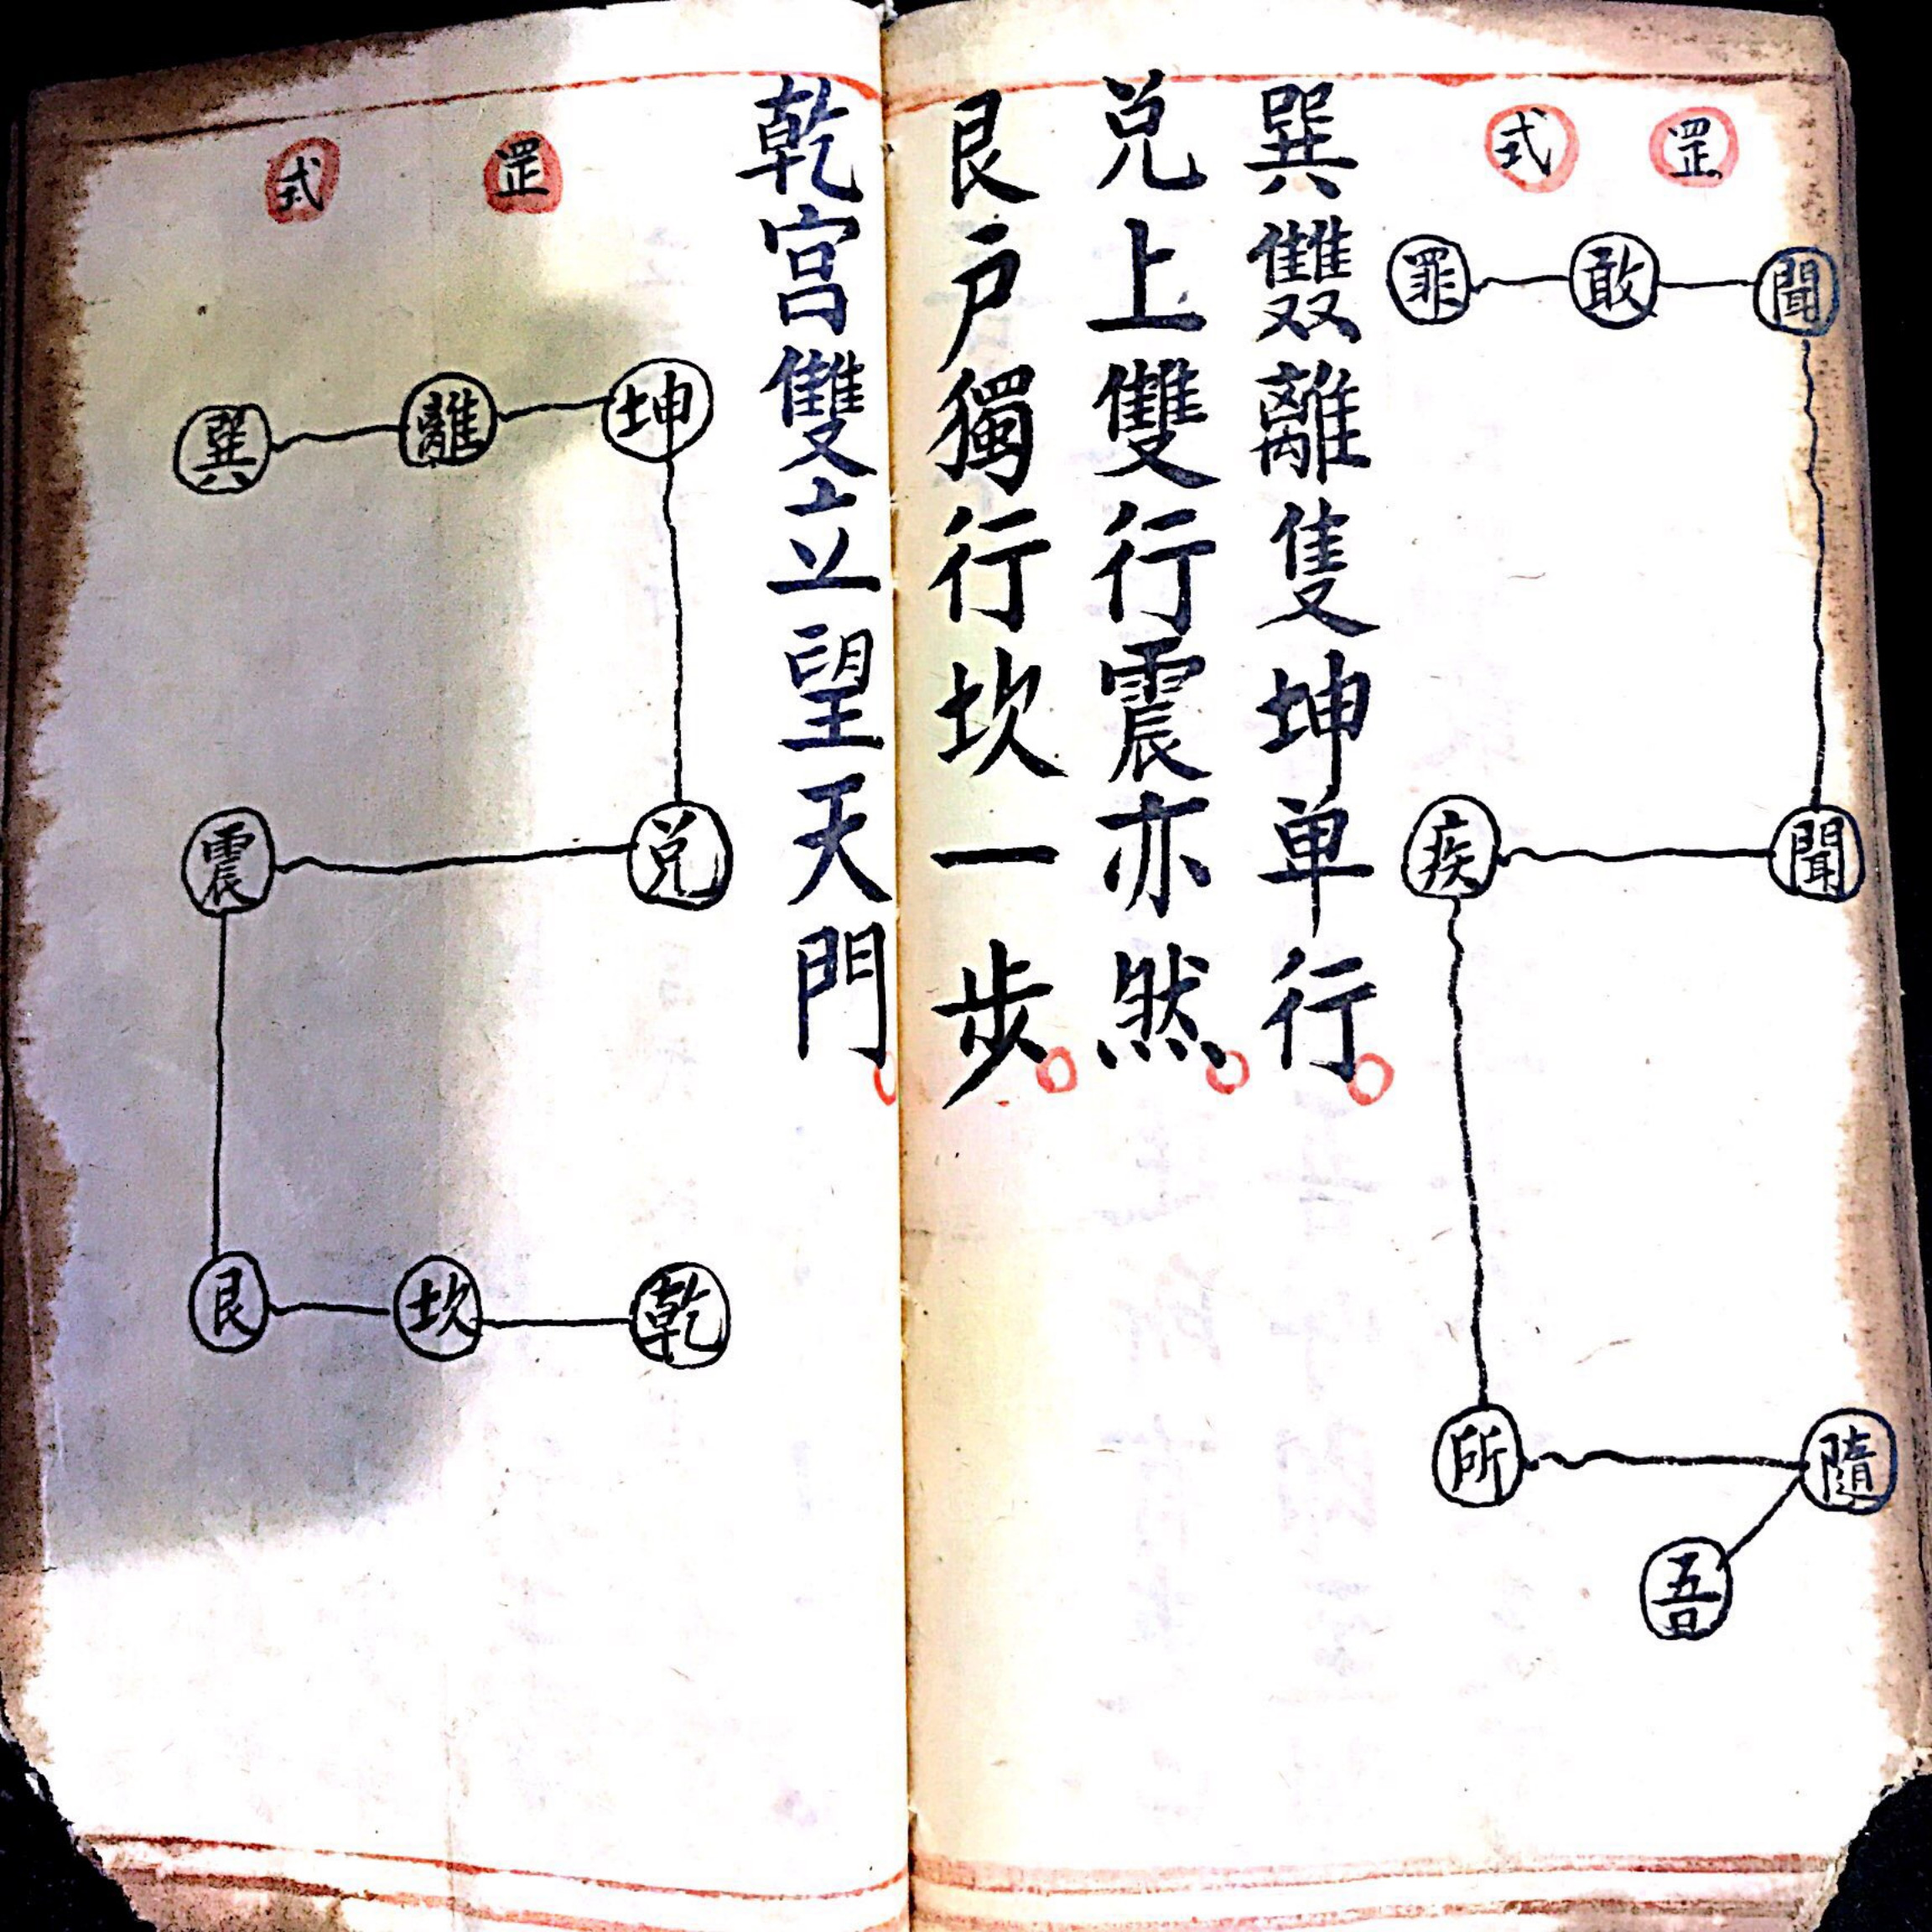 罡式
聞敢罪
聞疾
所隨
吾
巽雙離隻坤单行
兑上雙行震亦然
艮户獨行坎一步
乾宫雙立望天門
罡式
坤離巽
兑震
艮坎乾